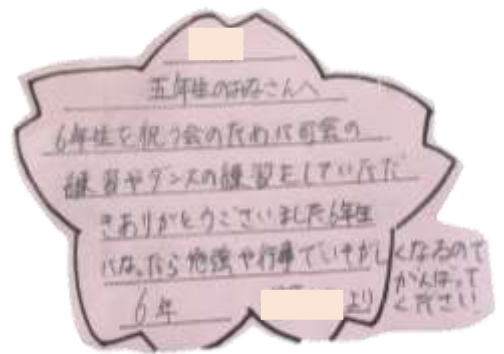 五年生のみなさんへ
6年生を祝う会のために司会の
練習やダンスの練習をしていただ
きありがとうございました6年生
になったら勉強や行事でいそがし
くなるので
がんばって
ください
6年 より